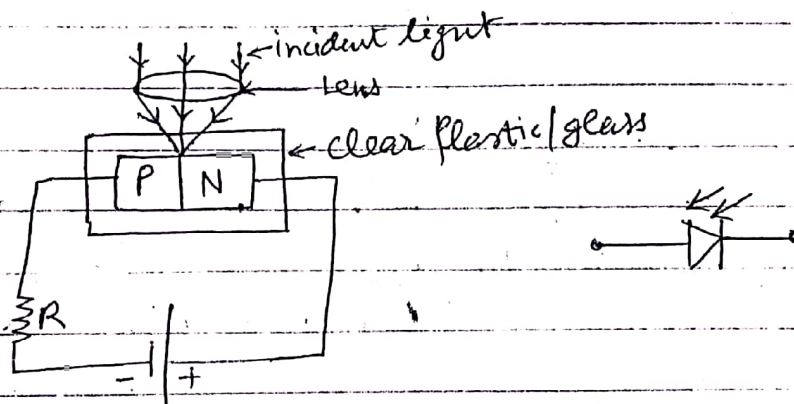 incident light
Lens
clear plastic/glass
P N
R
- +